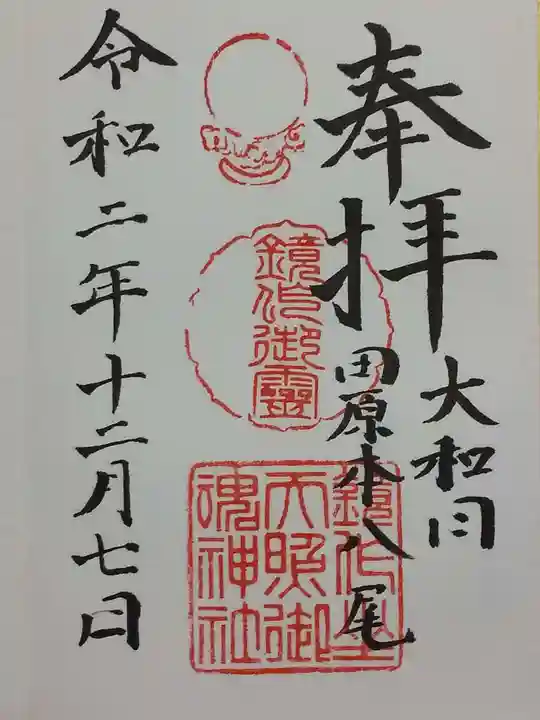 奉拝
大和国
田原本八尾
鏡作御霊
鏡作坐
天照御
魂神社
令和二年十二月七日